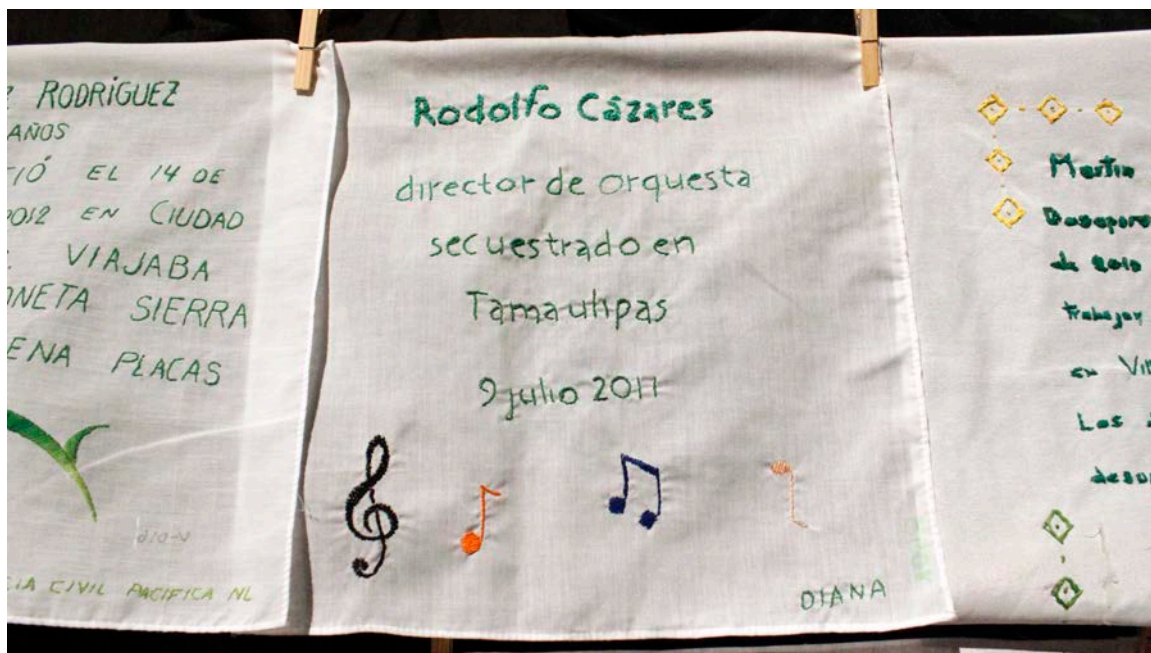 RODRÍGUEZ
AÑOS
EL 14 DE
2012 EN CIUDAD
VIAJABA
SIERRA
PLACAS
CIVIL PACIFICA NL
Rodolfo Cázares
director de orquesta
secuestrado en
Tamaulipas
9 julio 2011
DIANA
Martin
de 2010
trabajar
en
Los